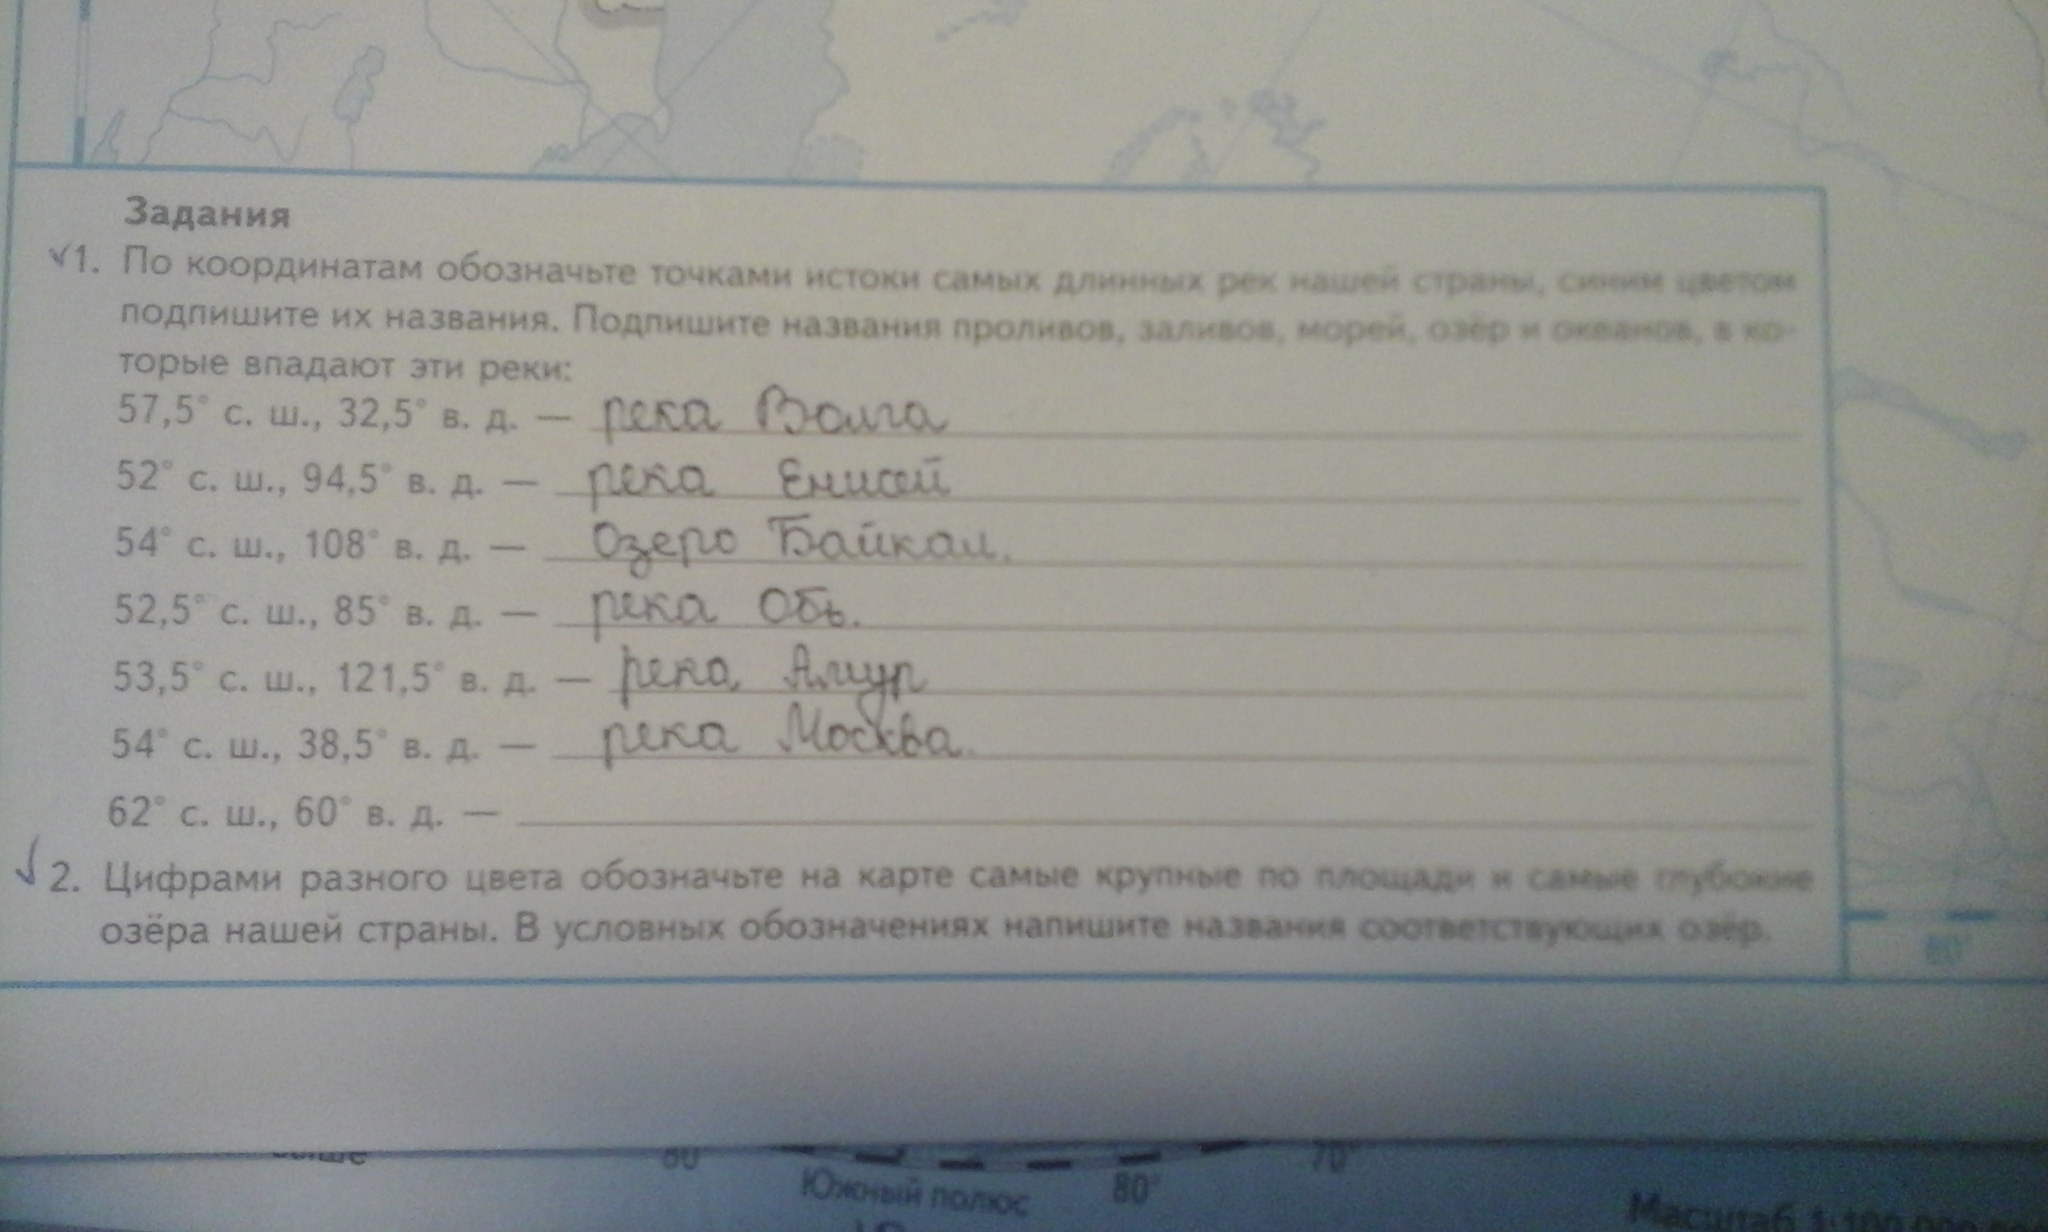 Задания
1. По координатам обозначьте точками истоки самых длинных рек нашей страны, синим цветом
подпишите их названия. Подпишите названия проливов, заливов, морей, озёр и океанов, в ко-
торые впадают эти реки:
57,5° с. ш., 32,5° в. д. — река Волга
52° с. ш., 94,5° в. д. — река Енисей
54° с. ш., 108° в. д. — Озеро Байкал.
52,5° с. ш., 85° в. д. — река Обь.
53,5° с. ш., 121,5° в. д. — река Амур
54° с. ш., 38,5° в. д. — река Москва.
62° с. ш., 60° в. д. —
2. Цифрами разного цвета обозначьте на карте самые крупные по площади и самые глубокие
озёра нашей страны. В условных обозначениях напишите названия соответствующих озёр.
80°
70°
80°
Южный полюс
Масштаб